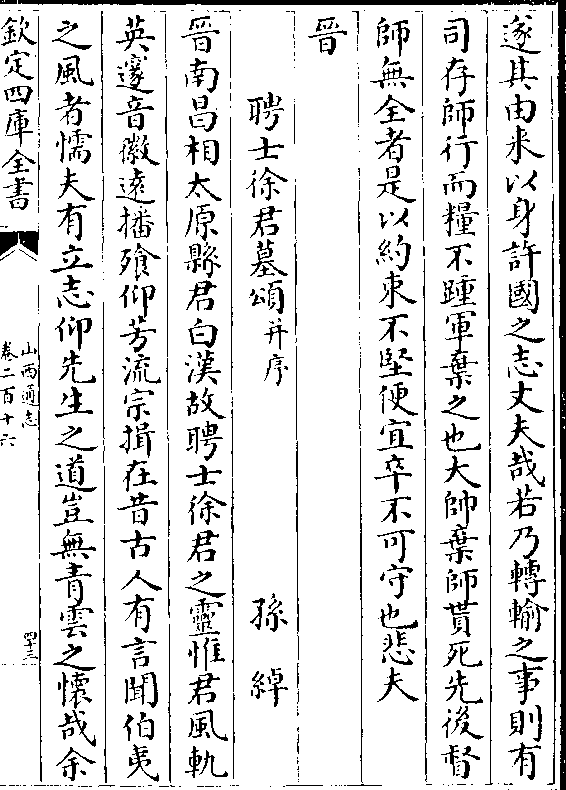 遂其由来以身許國之志丈夫哉若乃轉輸之事則有
司存師行而糧不踵軍棄之也大帥棄師貰死先後督
師無全者是以約束不堅便宜卒不可守也悲夫
晉
聘士徐君墓頌并序　孫綽
晉南昌相太原縣君白漢故聘士徐君之靈惟君風軌
英邃音徽遠播飱仰芳流宗揖在昔古人有言聞伯夷
之風者懦夫有立志仰先生之道豈無青雲之懷哉余
欽定四庫全書
山西通志
卷二百十六
四十三